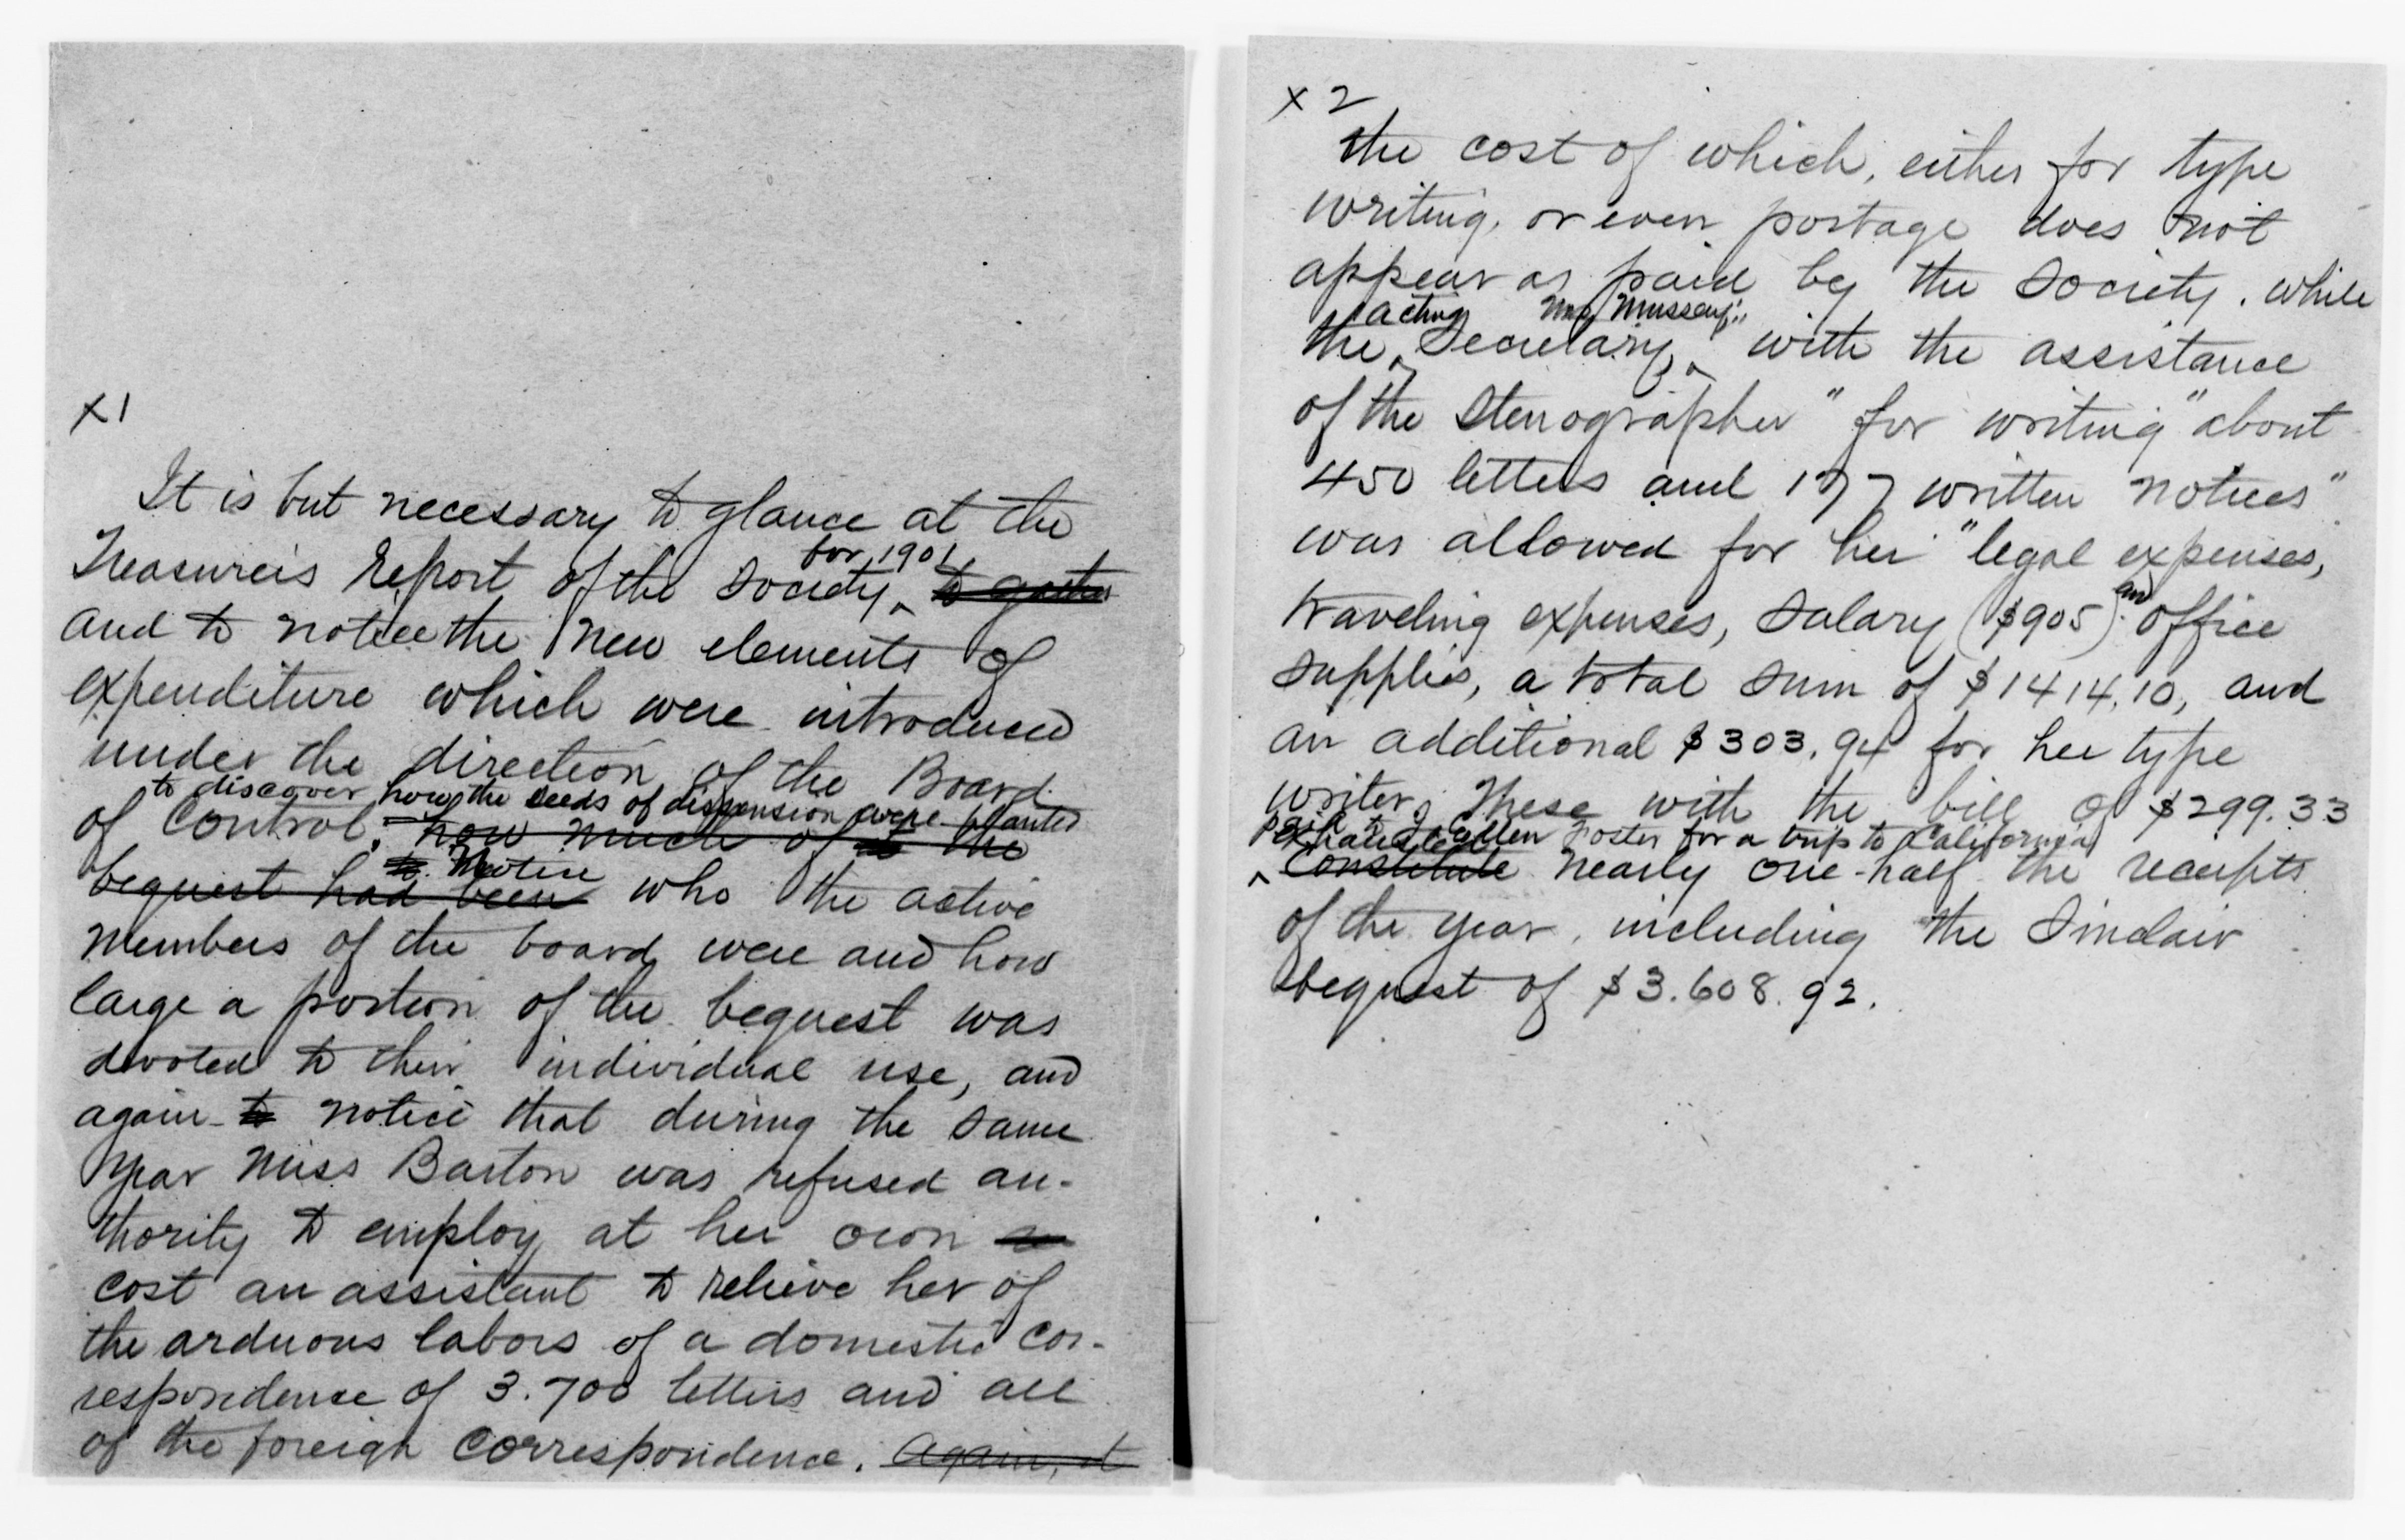 X1
It is but necessary to glance at the
for 1901
Treasurer's Report of the Society, to gather
and to notice the new elements of
expenditure which were introduced
under the direction of the Board
to discover how the seeds of dissension were planted
of Control, how much of the
to notice
bequest had been who the active
members of the board were and how
large a portion of the bequest was
devoted to their individual use, and
again to notice that during the same
year Miss Barton was refused au-
thority to employ at her own
cost an assistant to relieve her of
the arduous labors of a domestic cor-
respondence of 3.700 letters and all
of the foreign correspondence. Again, it
X 2
the cost of which, either for type
writing, or even postage does not
appear as paid by the Society. while
acting Mrs Mussey,
the Secretary, with the assistance
of the Stenographer "for writing" about
450 letters and 177 written notices"
was allowed for her "legal expenses,
and
traveling expenses, Salary ($905) office
supplies, a total sum of $1414.10, and
an additional $303.94 for her type
writer. These with the bill of $299.33
paid to J. Ellen Foster for a trip to California
Constitute nearly one-half the receipts
of the year, including the Sinclair
bequest of $3.608.92.